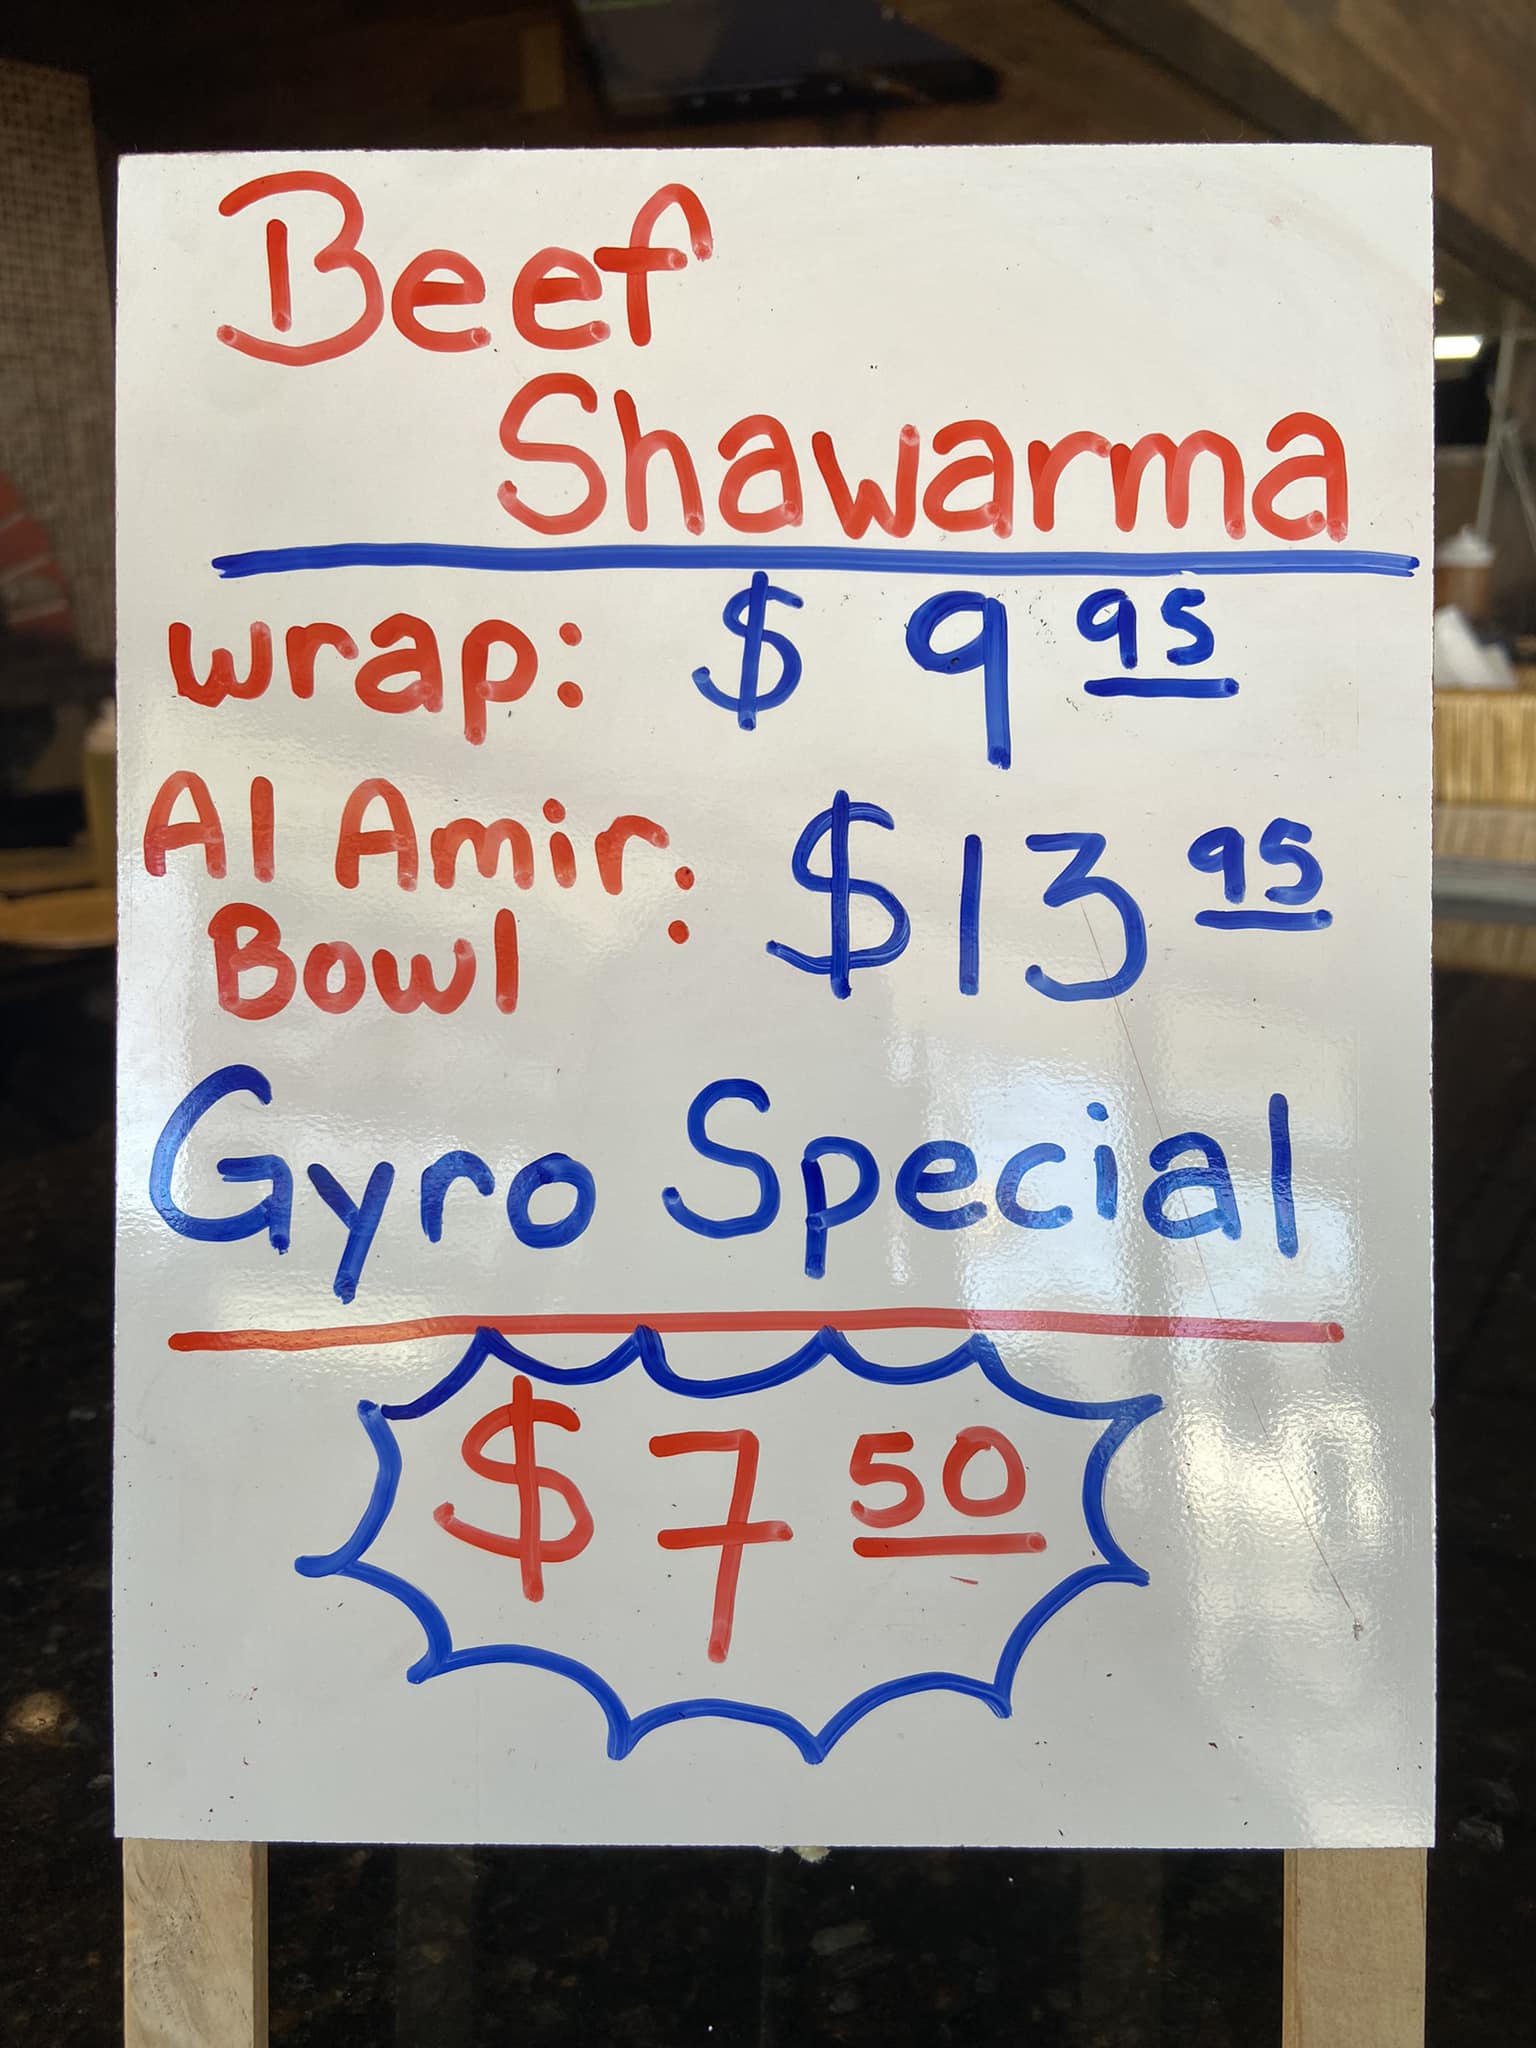 Beef
Shawarma
wrap: $ 9 95
Al Amir : $13 95
Bowl
Gyro Special
$ 7 50